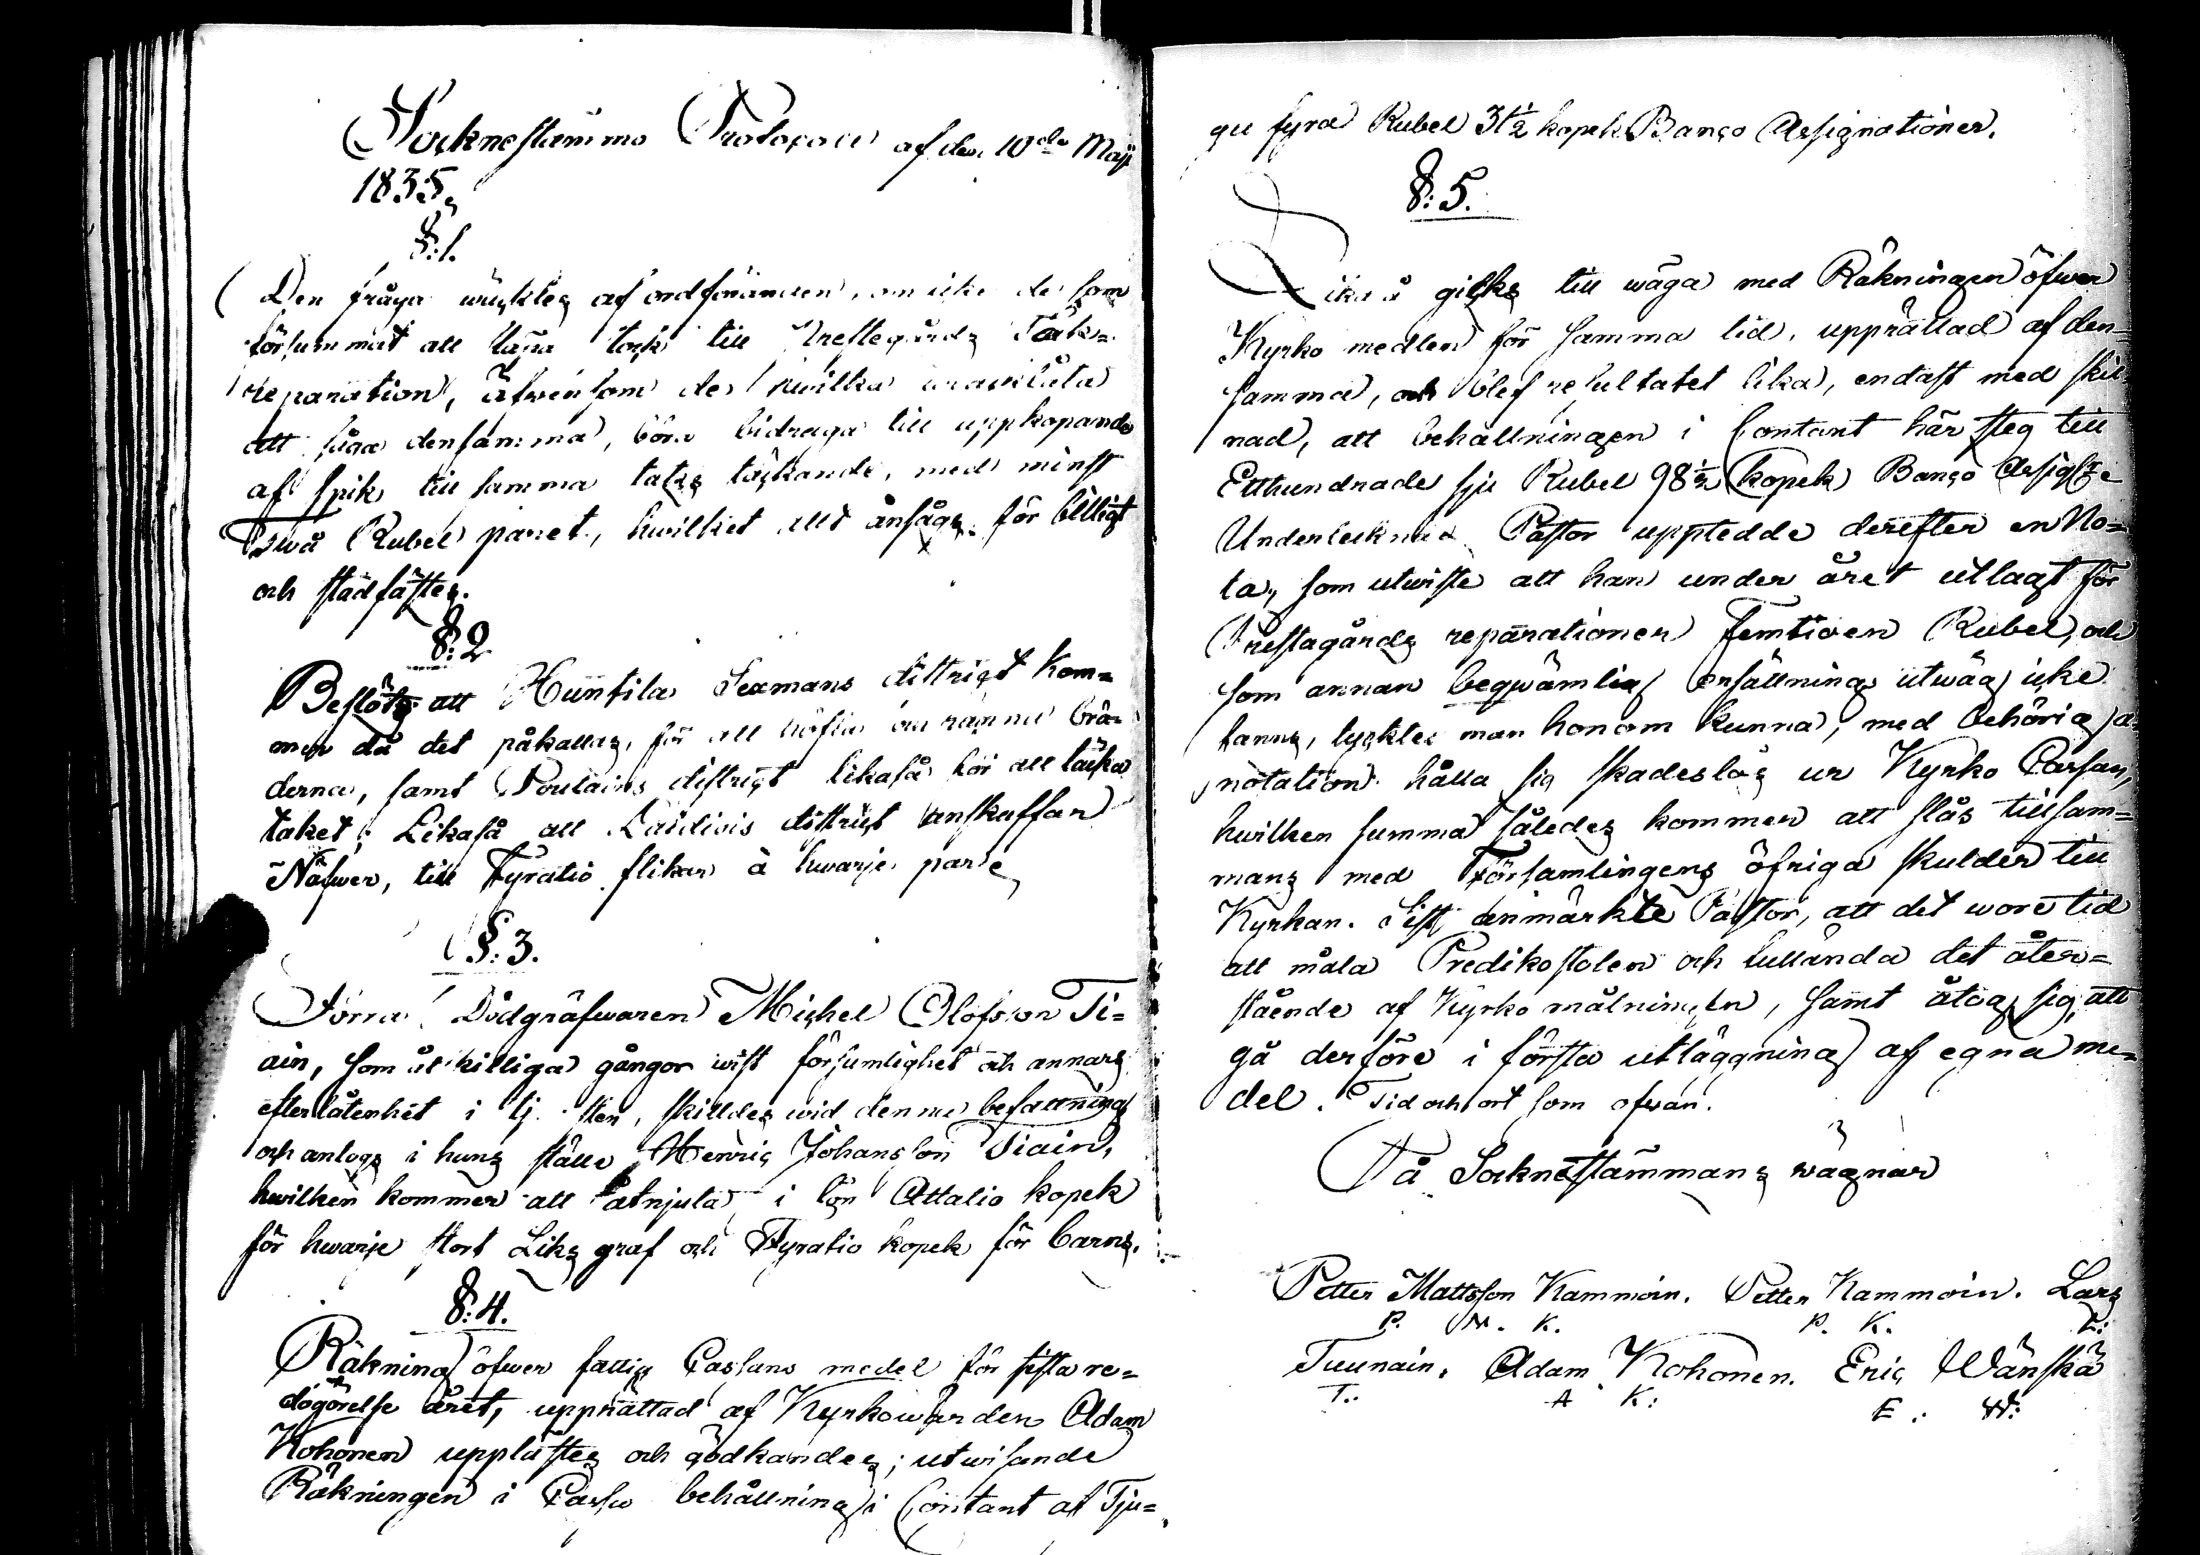 Socknestämmo Protocoll af den 10de Maji
1835,
§:1.
Den fråga wäcktes af ordföranden, om icke de som
försummat att täga tack till Prestegårds Tak=
reparation, äfwensom de hwilka uraktlåta
att såga densamma, böra bidraga till uppköpande
af spik till samma taks täckande, med minst
Twå Rubel paret, hwilket allt ansågs för billigt
och stadfästes.
§:2
Beslöts att Huntila Lexmans districkt kom=
mer då det påkallas, för att
derna, samt Poutains district likaså för att täcka
taket; Likaså att Laidiois district anskaffar
Näfwer, till Fyratio flikar à hwarje pare,
§:3.
Förra Dödgräfwaren Michel Olofsson Ti=
ain, som åtskilliga gångor wist försumlighet och annars
efterlåtenhet i tjensten, skilldes wid denna befattning
och antogs i hans ställe Henric Johansson Tiain,
hwilken kommer att åtnjuta i lön Attatio kopek
för hwarje stort Liks graf och Fyratio kopek för barns.
§:4.
Räkning öfwer fattig Cassans medel för sista re=
dogörelse året, upprättad af Kyrkowärden Adam
Kohonen upplästes och godkändes; utwisande
Räkningen i Cassa behållning i Contant af Tju=
gu fyra Rubel 31½ kopek Banco Assignationer.
§:5.
Lika å gicks till wäga med Räkningen öfwer
Kyrko medlen för samma tid, upprättad af den=
samma, och blef resultatet lika, endast med skil
nad, att behållningen i Contant här steg till
Etthundrade sju Rubel 98½ kopek Banco Assigt:e
Undertecknad Pastor upptedde derefter en No=
ta, som utwiste att han under året utlagt för
Prestagårds reparationer Femtioen Rubel, och
som annan beqwämlig ersättnings utwäg icke
fanns, tycktes man honom kunna, med behörig a
notation hålla sig skadeslös ur Kyrko Cassan,
hwilken summa således kommer att slås tillsam=
mans med Församlingens öfriga skulder till
Kyrkan. Sist anmärkte Pastor, att det wore tid
att måla Predikostolen och fullända det åter=
stående af Kyrko målningen, samt åtog sig, att
gå derföre i första utläggning af egna me=
del. Tid och ort som ofwan.
På Socknestämmans wägnar
Petter Mattsson Kammoin. Petter Kammoin. Lars
P. M. K. P. K. L:
Tuunain. Adam Kohonen. Eric Wänskä
T: A K: E: W: